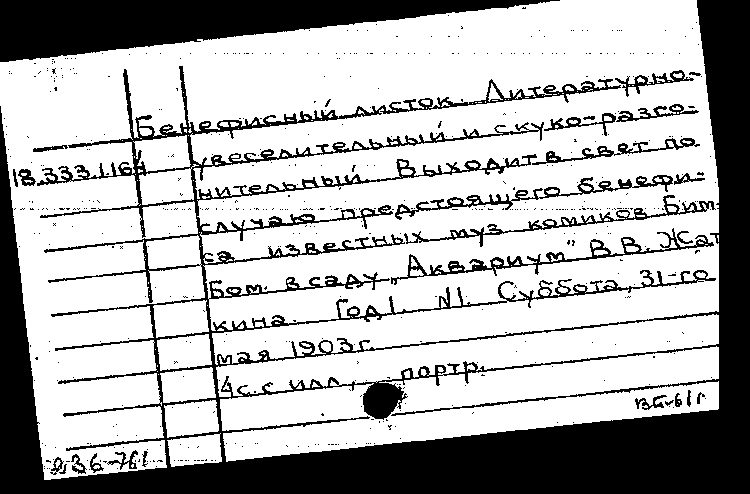 Бенефисный листок. Литературно-
18.333.1.164 увеселительный и скуко-разго-
нительный. Выходит в свет по
случаю предстоящего бенефи-
са известных муз. комиков Бим-
Бом в саду „Аквариум" В.В. Жат
кина. Год I. N1. Суббота, 31-го
мая 1903 г.
4 с. с илл., портр.